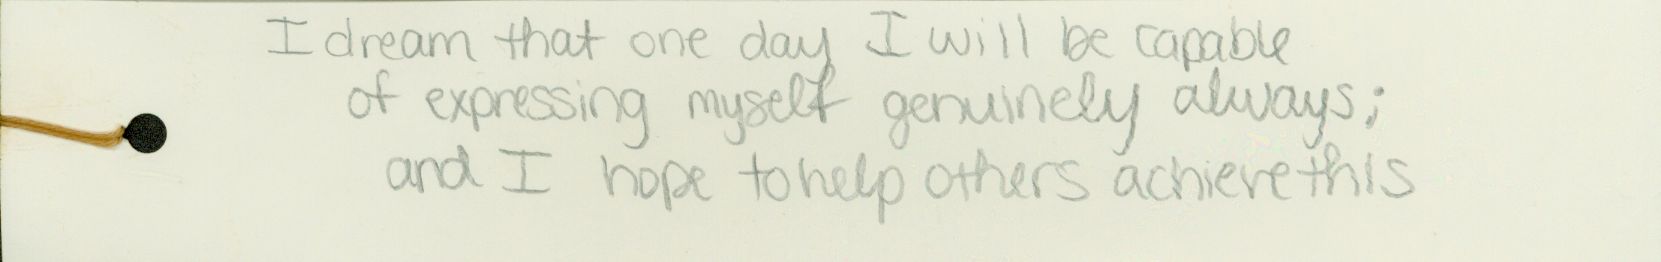 I dream that one day I will be capable
of expressing myself genuinely always;
and I hope to help others achieve this